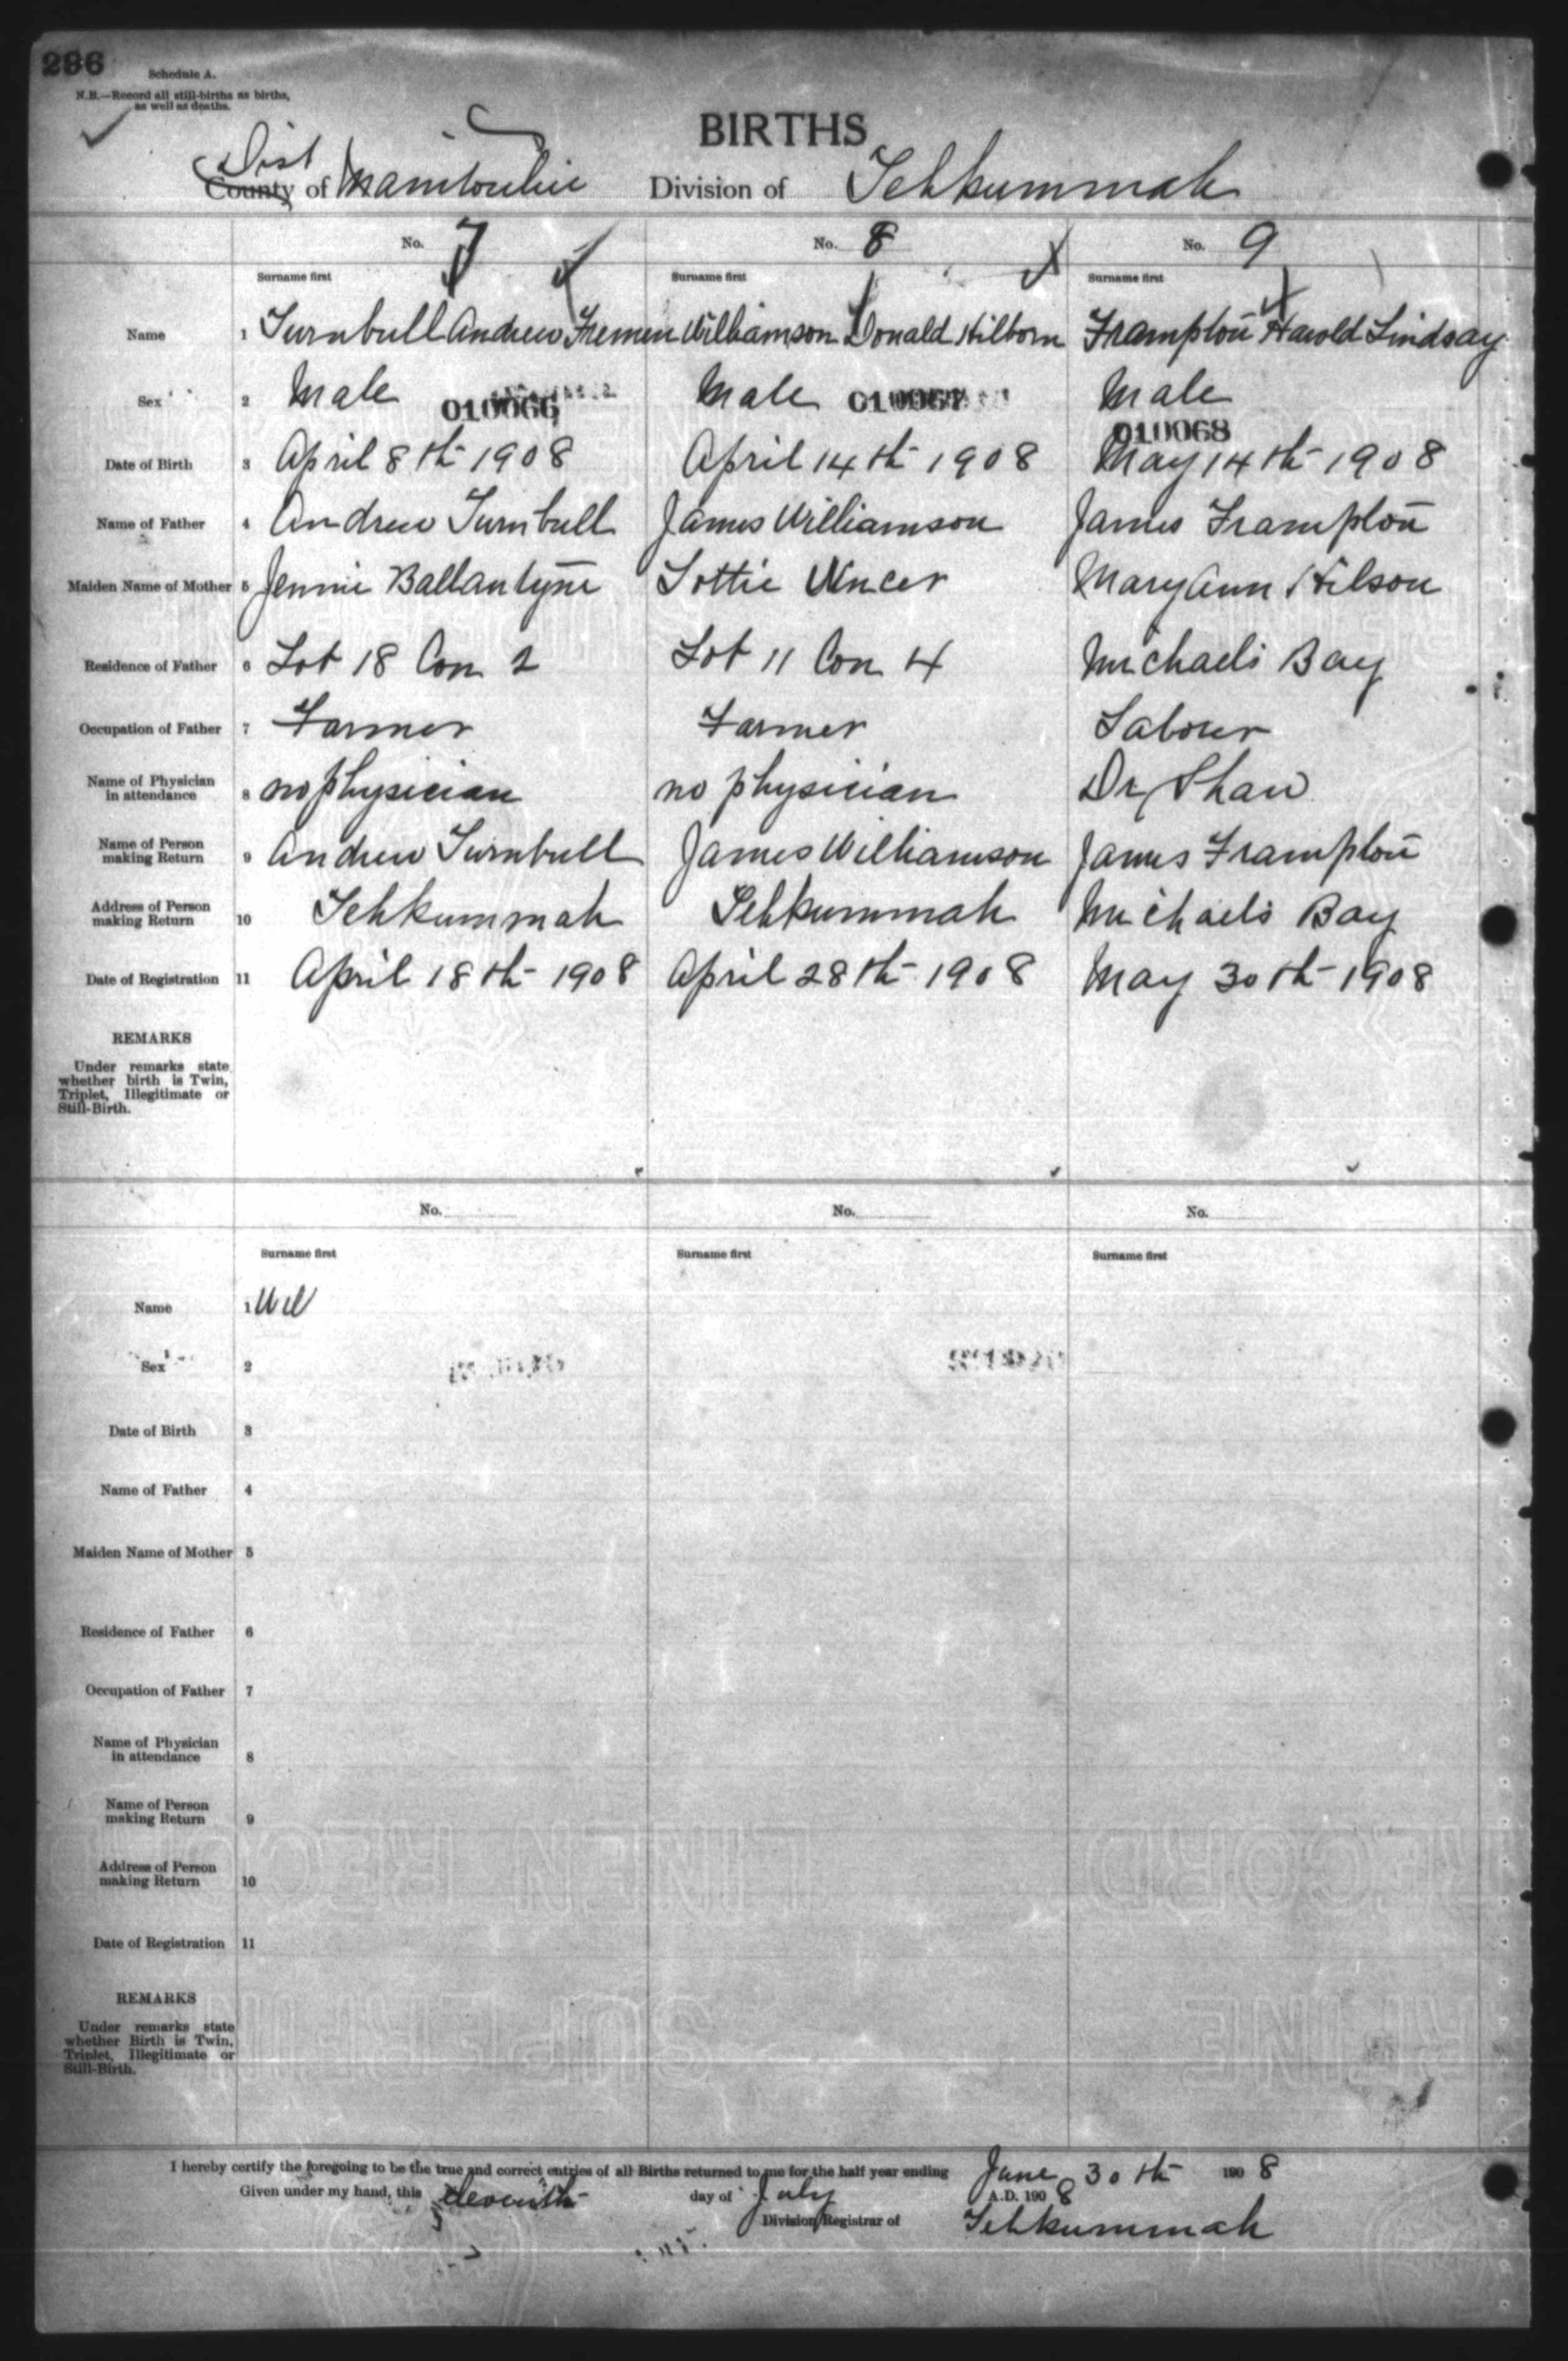 286
Schedule A.
N.B.—Record all still-births as births,
as well as deaths.
BIRTHS
Dist
County of Manitoulin Division of Tehkummah
No. 7 No. 8 No. 9
Surname first Surname first Surname first
Name 1 Turnbull Andrew Williamson Donald Hilborn Frampton Harold Lindsay
Sex 2 Male Male Male
010066 010067 010068
Date of Birth 3 April 8th 1908 April 14th 1908 May 14th 1908
Name of Father 4 Andrew Turnbull James Williamson James Frampton
Maiden Name of Mother 5 Jennie Ballantyne Lottie Mary Ann Hilson
Residence of Father 6 Lot 18 Con 2 Lot 11 Con 4 Michaels Bay
Occupation of Father 7 Farmer Farmer Labour
Name of Physician
in attendance 8 no physician no physician Dr Shaw
Name of Person
making Return 9 Andrew Turnbull James Williamson James Frampton
Address of Person
making Return 10 Tehkummah Tehkummah Michaels Bay
Date of Registration 11 April 18th 1908 April 28th 1908 May 30th 1908
REMARKS
Under remarks state
whether birth is Twin,
Triplet, Illegitimate or
Still-Birth.
No. No. No.
Surname first Surname first Surname first
Name 1 Wil
Sex 2
Date of Birth 3
Name of Father 4
Maiden Name of Mother 5
Residence of Father 6
Occupation of Father 7
Name of Physician
in attendance 8
Name of Person
making Return 9
Address of Person
making Return 10
Date of Registration 11
REMARKS
Under remarks state
whether Birth is Twin,
Triplet, Illegitimate or
Still-Birth.
I hereby certify the foregoing to be the true and correct entries of all Births returned to me for the half year ending June 30th 1908
Given under my hand, this eleventh day of July A.D. 1908
Division Registrar of Tehkummah